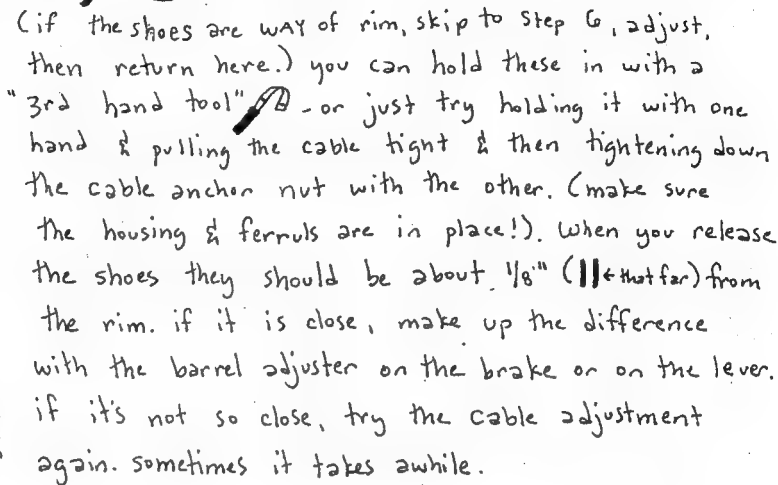 (if the shoes are WAY of rim, skip to step 6, adjust,
then return here.) you can hold these in with a
"3rd hand tool" - or just try holding it with one
hand & pulling the cable tight & then tightening down
the cable anchor nut with the other. (make sure
the housing & ferruls are in place!). when you release
the shoes they should be about 1/8" (||← that far) from
the rim. if it is close, make up the difference
with the barrel adjuster on the brake or on the lever.
if it's not so close, try the cable adjustment
again. sometimes it takes awhile.